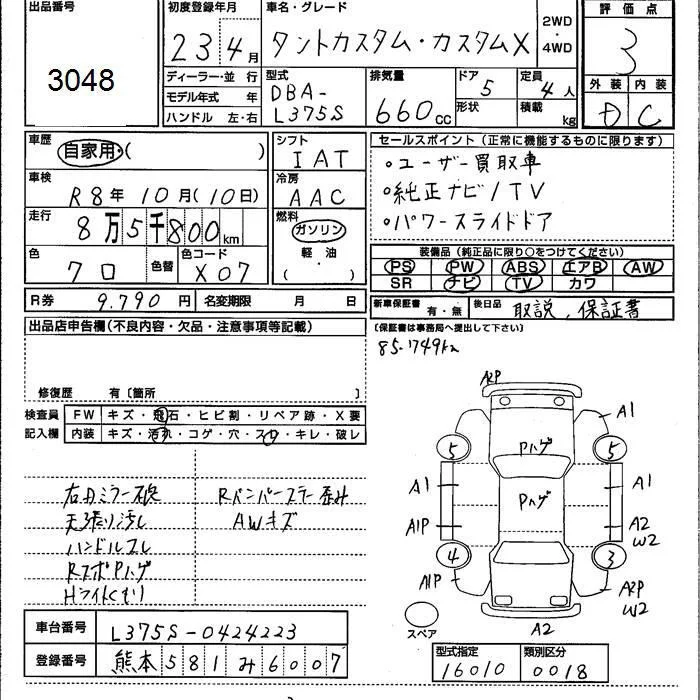 出品番号
3048
初度登録年月
23 4月
車名・グレード
タントカスタム・カスタムX
2WD
・
4WD
評価点
3
外装 内装
D C
ディーラー・並 行
モデル年式 年
ハンドル 左・右
型式
DBA-
L375S
排気量
660cc
ドア
5
形状
定員
4人
積載
kg
車歴
自家用・( )
車検
R8年 10月(10日)
走行
8万5千800km
色
クロ
色替
色コード
X07
シフト
IAT
冷房
AAC
燃料
ガソリン
軽 油
( )
セールスポイント(正常に機能するものに限ります)
・ユーザー買取車
・純正ナビ/TV
・パワースライドドア
装備品(純正品に限り○をつけてください)
PS PW ABS エアB AW
SR ナビ TV カワ
R券 9.790円
名変期限 月 日
新車保証書 有・無
後日品 取説、保証書
(保証書は事務局へ提出して下さい)
85.749km
出品店申告欄(不良内容・欠品・注意事項等記載)
修復歴 有〔箇所 〕
検査員
記入欄
FW キズ・飛石・ヒビ割・リペア跡・X要
内装 キズ・汚れ・コゲ・穴・スレ・キレ・破レ
右ドミラー破
天張り汚し
ハンドルスレ
RスポPハゲ
Hライトくもり
Rバンパーステー歪み
AWキズ
A2P
A1
5
5
Pハゲ
A1
A1
Pハゲ
A1P
A2
W2
4
3
A1P
A2P
W2
スペア
A2
車台番号 L375S-0424223
登録番号 熊本581み6007
型式指定
16010
類別区分
0018